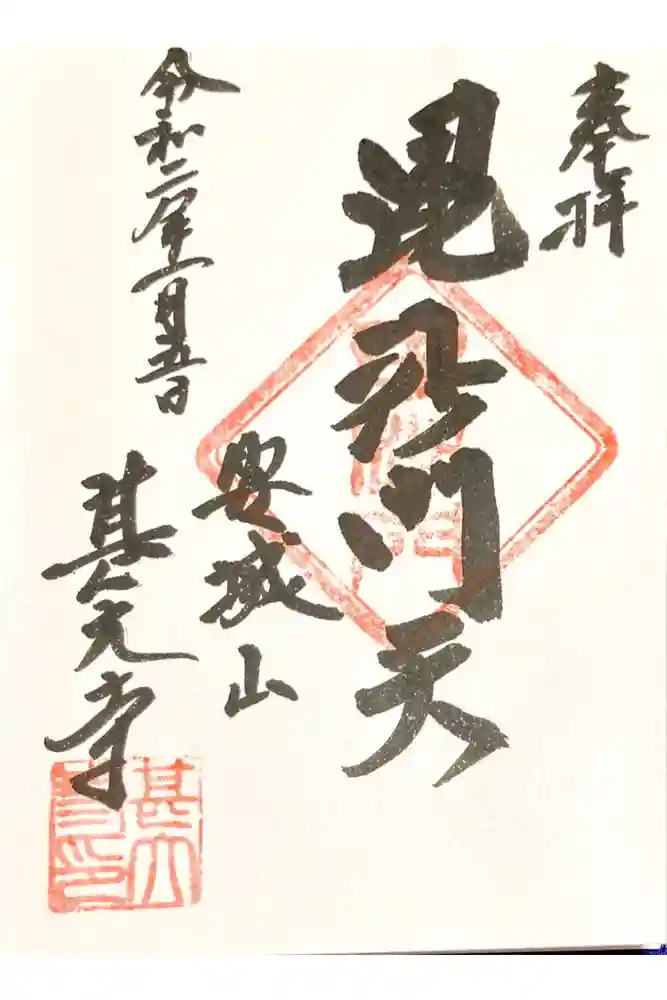 奉拝
毘沙門天
安城山
甚大寺
令和二年十一月五日
甚大寺印